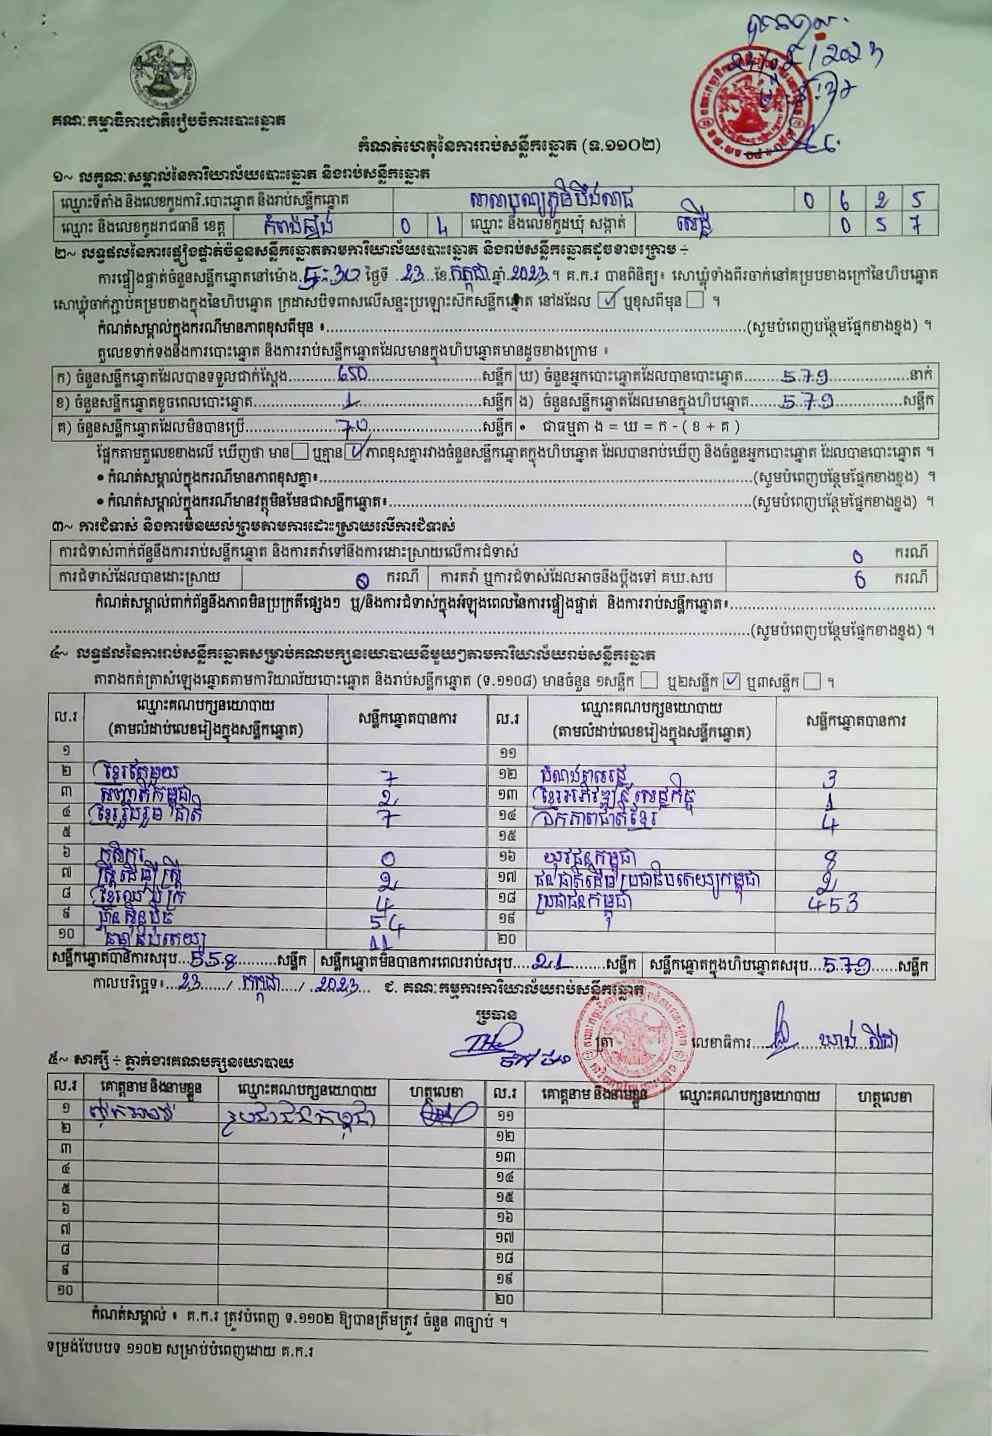 គណៈកម្មាធិការជាតិរៀបចំការបោះឆ្នោត
កំណត់ហេតុនៃការរាប់សន្លឹកឆ្នោត (ទ.១១០២)
១~ លក្ខណៈសម្គាល់នៃការិយាល័យបោះឆ្នោត និងរាប់សន្លឹកឆ្នោត
ឈ្មោះទីតាំង និងលេខកូដការិ.បោះឆ្នោត និងរាប់សន្លឹកឆ្នោត សាលាបុណ្យភូមិបឹងលាជ 0 6 2 5
ឈ្មោះ និងលេខកូដរាជធានី ខេត្ត កំពង់ឆ្នាំង 0 4 ឈ្មោះ និងលេខកូដឃុំ សង្កាត់ 0 5 7
២~ លទ្ធផលនៃការផ្ទៀងផ្ទាត់ចំនួនសន្លឹកឆ្នោតតាមការិយាល័យបោះឆ្នោត និងរាប់សន្លឹកឆ្នោតដូចខាងក្រោម ÷
ការផ្ទៀងផ្ទាត់ចំនួនសន្លឹកឆ្នោតនៅម៉ោង ថ្ងៃទី 23 ខែ កក្កដា ឆ្នាំ 2023 ។ គ.ក.រ បានពិនិត្យ៖ សោឃ្លុំទាំងពីរចាក់នៅគម្របខាងក្រៅនៃហិបឆ្នោត
សោឃ្លុំចាក់ភ្ជាប់គម្របខាងក្នុងនៃហិបឆ្នោត ក្រដាសបិទពាសលើសន្ទះប្រឡោះស៊កសន្លឹកឆ្នោត នៅដដែល ☑ ឬខុសពីមុន ☐ ។
កំណត់សម្គាល់ក្នុងករណីមានភាពខុសពីមុន ៖ (សូមបំពេញបន្ថែមផ្នែកខាងខ្នង) ។
តួលេខទាក់ទងនឹងការបោះឆ្នោត និងការរាប់សន្លឹកឆ្នោតដែលមានក្នុងហិបឆ្នោតមានដូចខាងក្រោម ៖
ក) ចំនួនសន្លឹកឆ្នោតដែលបានទទួលជាក់ស្តែង 650 សន្លឹក ឃ) ចំនួនអ្នកបោះឆ្នោតដែលបានបោះឆ្នោត 579 នាក់
ខ) ចំនួនសន្លឹកឆ្នោតខូចពេលបោះឆ្នោត 1 សន្លឹក ង) ចំនួនសន្លឹកឆ្នោតដែលមានក្នុងហិបឆ្នោត 579 សន្លឹក
គ) ចំនួនសន្លឹកឆ្នោតដែលមិនបានប្រើ 70 សន្លឹក • ជាធម្មតា ង = ឃ = ក - ( ខ + គ )
ផ្អែកតាមតួលេខខាងលើ ឃើញថា មាន ☐ ឬគ្មាន ☑ ភាពខុសគ្នារវាងចំនួនសន្លឹកឆ្នោតក្នុងហិបឆ្នោត ដែលបានរាប់ឃើញ និងចំនួនអ្នកបោះឆ្នោត ដែលបានបោះឆ្នោត ។
• កំណត់សម្គាល់ក្នុងករណីមានភាពខុសគ្នា៖ (សូមបំពេញបន្ថែមផ្នែកខាងខ្នង) ។
• កំណត់សម្គាល់ក្នុងករណីមានវត្ថុមិនមែនជាសន្លឹកឆ្នោត៖ (សូមបំពេញបន្ថែមផ្នែកខាងខ្នង) ។
៣~ ការជំទាស់ និងការមិនយល់ព្រមតាមការដោះស្រាយលើការជំទាស់
ការជំទាស់ពាក់ព័ន្ធនឹងការរាប់សន្លឹកឆ្នោត និងការតវ៉ាទៅនឹងការដោះស្រាយលើការជំទាស់ 0 ករណី
ការជំទាស់ដែលបានដោះស្រាយ 0 ករណី ការតវ៉ា ឬការជំទាស់ដែលអាចនឹងប្តឹងទៅ គឃ.សប 0 ករណី
កំណត់សម្គាល់ពាក់ព័ន្ធនឹងភាពមិនប្រក្រតីផ្សេងៗ ឬ/និងការជំទាស់ក្នុងអំឡុងពេលនៃការផ្ទៀងផ្ទាត់ និងការរាប់សន្លឹកឆ្នោត៖
(សូមបំពេញបន្ថែមផ្នែកខាងខ្នង) ។
៤~ លទ្ធផលនៃការរាប់សន្លឹកឆ្នោតសម្រាប់គណបក្សនយោបាយនីមួយៗតាមការិយាល័យរាប់សន្លឹកឆ្នោត
តារាងកត់ត្រាសំឡេងឆ្នោតតាមការិយាល័យបោះឆ្នោត និងរាប់សន្លឹកឆ្នោត (ទ.១១០៨) មានចំនួន ១សន្លឹក ☐ ឬ២សន្លឹក ☑ ឬ៣សន្លឹក ☐ ។
ល.រ ឈ្មោះគណបក្សនយោបាយ (តាមលំដាប់លេខរៀងក្នុងសន្លឹកឆ្នោត) សន្លឹកឆ្នោតបានការ ល.រ ឈ្មោះគណបក្សនយោបាយ (តាមលំដាប់លេខរៀងក្នុងសន្លឹកឆ្នោត) សន្លឹកឆ្នោតបានការ
១ ១១
២ ខ្មែរតែមួយ 7 ១២ 3
៣ សញ្ជាតិកម្ពុជា 2 ១៣ ខ្មែរអភិវឌ្ឍន៍សេដ្ឋកិច្ច 1
៤ ខ្មែររួបរួមជាតិ 7 ១៤ ឯកភាពជាតិខ្មែរ 4
៥ ១៥
៦ កសិករ 0 ១៦ យុវជនកម្ពុជា 8
៧ ស្ត្រីដើម្បីស្ត្រី 2 ១៧ ជនជាតិដើមប្រជាធិបតេយ្យកម្ពុជា 2
៨ 4 ១៨ ប្រជាជនកម្ពុជា 453
៩ ហ្វ៊ុនស៊ិនប៉ិច 54 ១៩
១០ 11 ២០
សន្លឹកឆ្នោតបានការសរុប 558 សន្លឹក សន្លឹកឆ្នោតមិនបានការពេលរាប់សរុប 21 សន្លឹក សន្លឹកឆ្នោតក្នុងហិបឆ្នោតសរុប 579 សន្លឹក
កាលបរិច្ឆេទ៖ 23 / កក្កដា / 2023 ជ. គណៈកម្មការការិយាល័យរាប់សន្លឹកឆ្នោត
ប្រធាន
ត្រា លេខាធិការ
៥~ សាក្សី ÷ ភ្នាក់ងារគណបក្សនយោបាយ
ល.រ គោត្តនាម និងនាមខ្លួន ឈ្មោះគណបក្សនយោបាយ ហត្ថលេខា ល.រ គោត្តនាម និងនាមខ្លួន ឈ្មោះគណបក្សនយោបាយ ហត្ថលេខា
១ ប្រជាជនកម្ពុជា ១១
២ ១២
៣ ១៣
៤ ១៤
៥ ១៥
៦ ១៦
៧ ១៧
៨ ១៨
៩ ១៩
១០ ២០
កំណត់សម្គាល់ ៖ គ.ក.រ ត្រូវបំពេញ ទ.១១០២ ឱ្យបានត្រឹមត្រូវ ចំនួន ៣ច្បាប់ ។
ទម្រង់បែបបទ ១១០២ សម្រាប់បំពេញដោយ គ.ក.រ